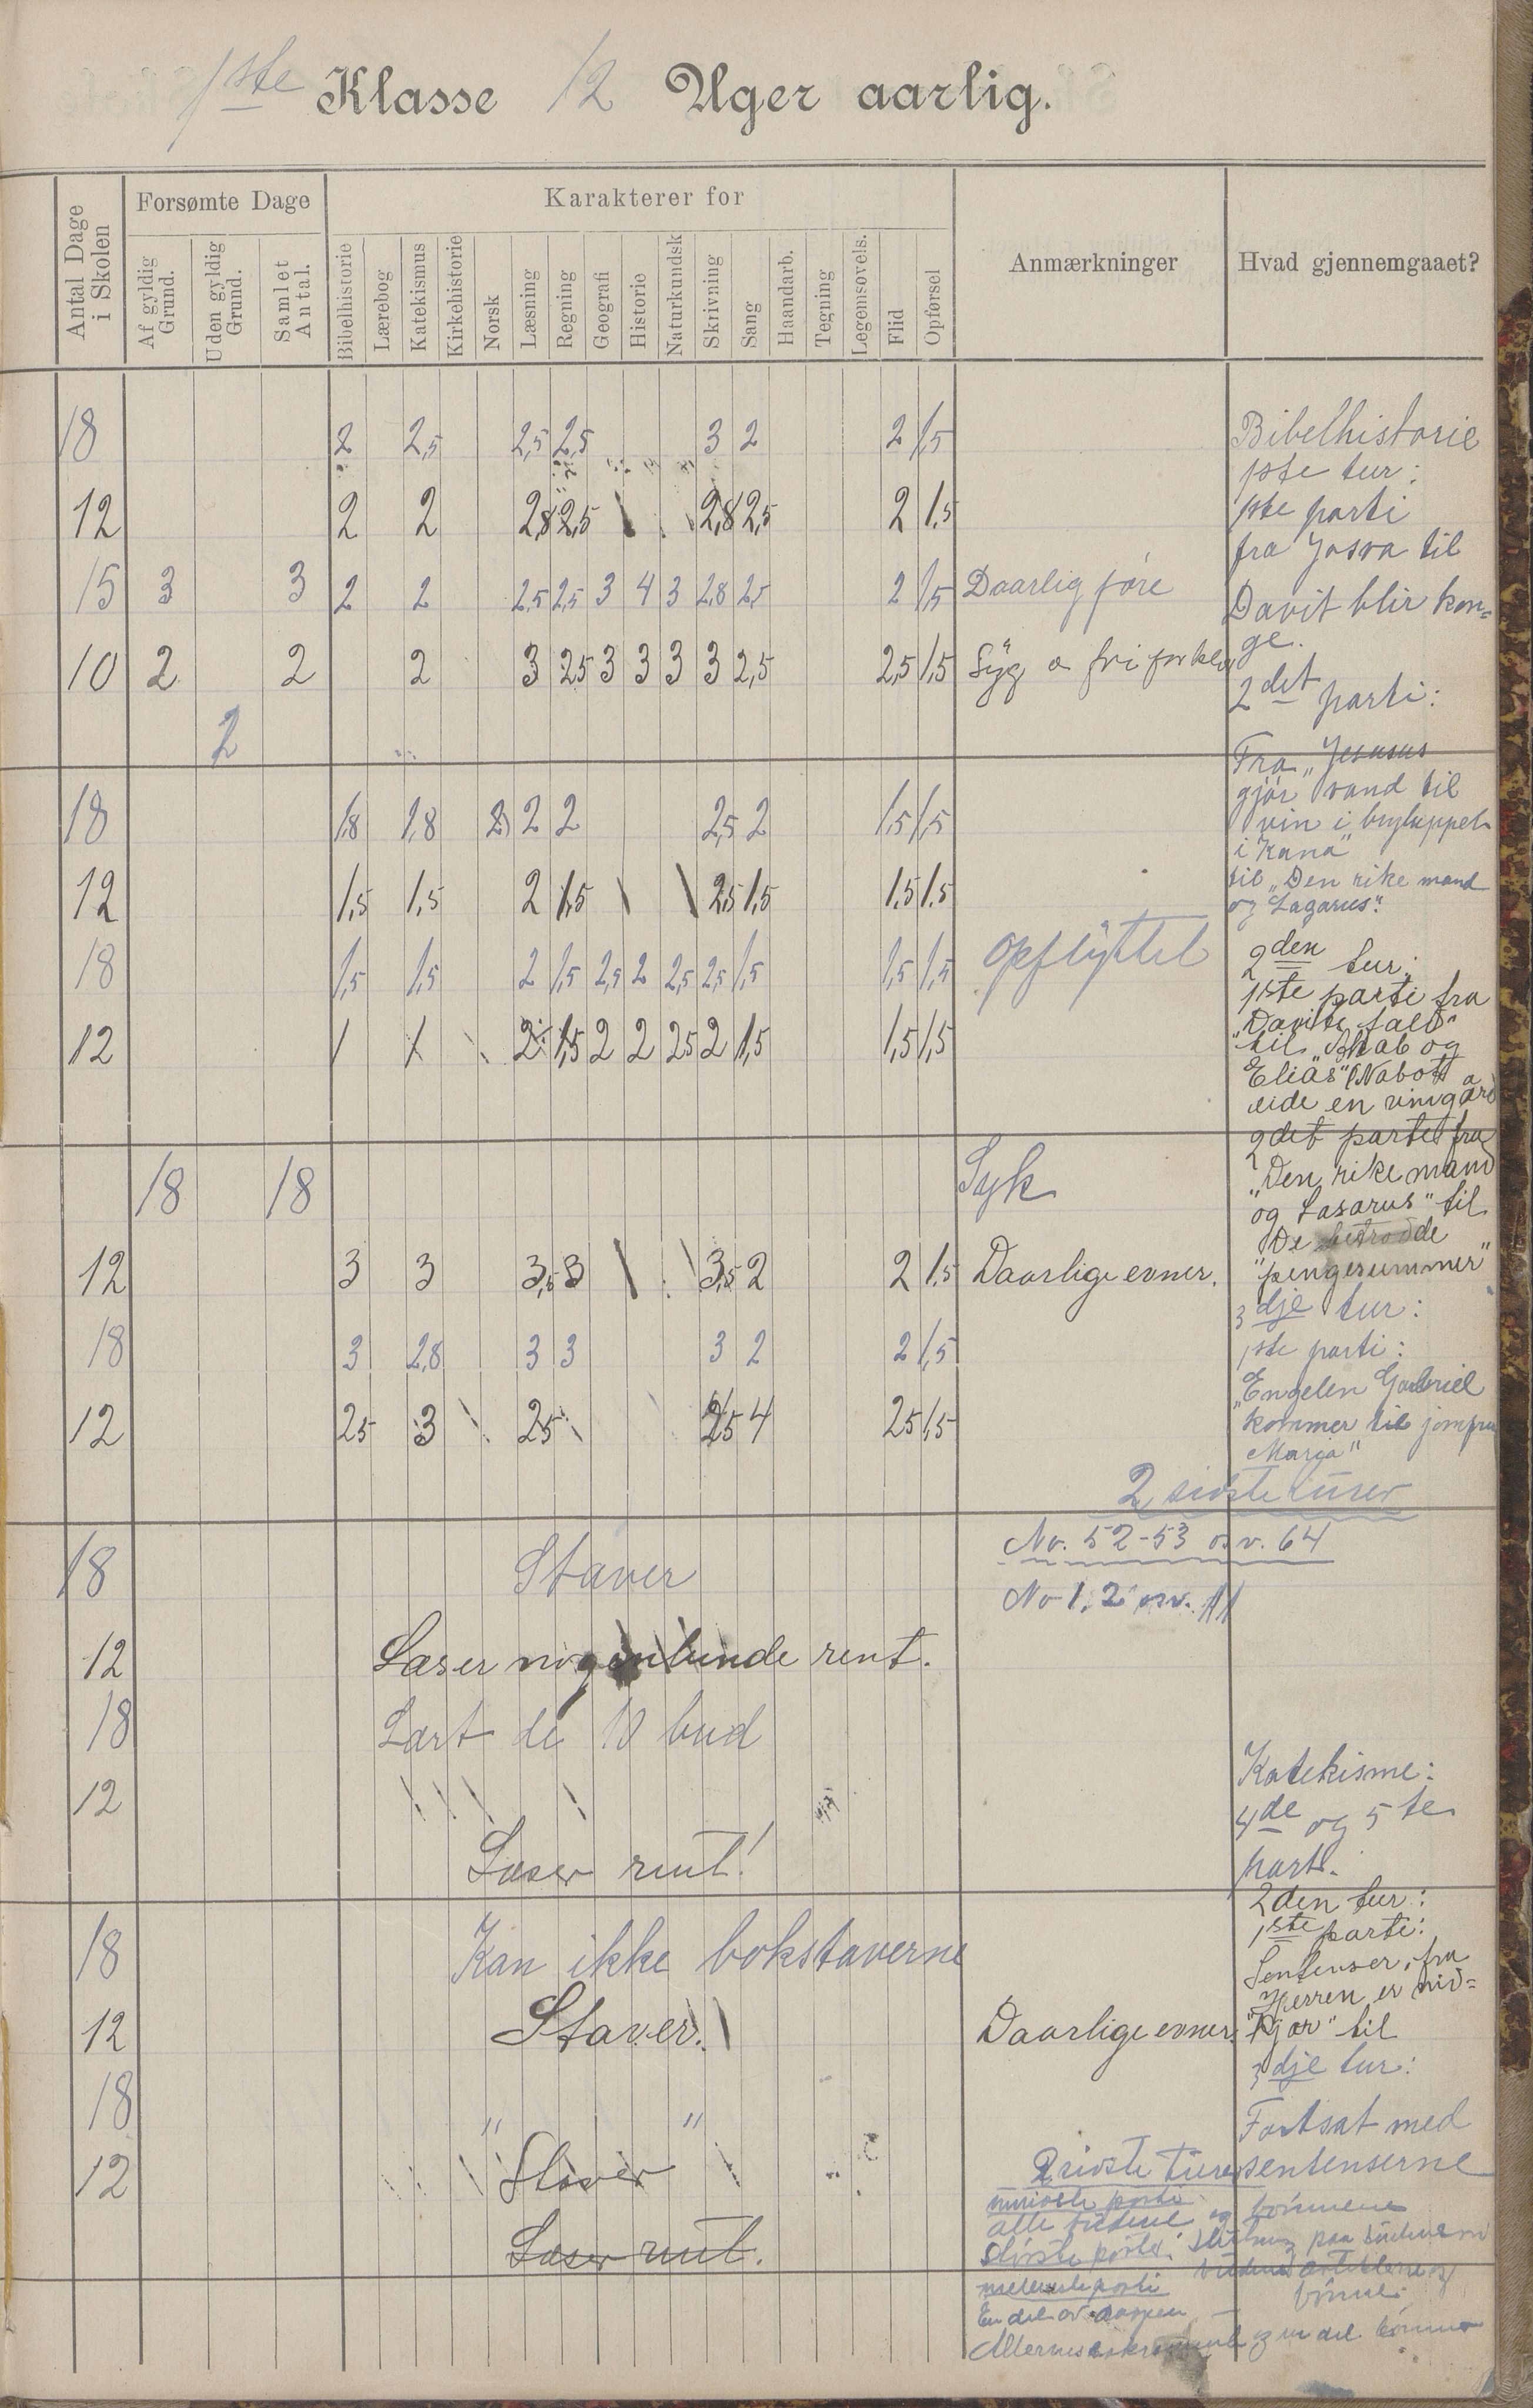 1ste Klasse 12 Uger aarlig.
Antal Dage i Skolen
Forsømte Dage
Af gyldig Grund.
Uden gyldig Grund.
Samlet Antal.
Karakterer for
Bibelhistorie
Lærebog
Katekismus
Kirkehistorie
Norsk
Læsning
Regning
Geografi
Historie
Naturkundsk
Skrivning
Sang
Haandarb.
Tegning
Legemsøvels.
Flid
Opførsel
Anmærkninger
Hvad gjennemgaaet?
18 2 2,5 2,5 2,5 3 2 2 1,5
12 2 2 2,8 2,5 2,8 2,5 2 1,5
15 3 3 2 2 2,5 2,5 3 4 3 2,8 2,5 2 1,5 Daarlig føre
10 2 2 2 3 2,5 3 3 3 3 2,5 2,5 1,5 Syg
2
18 1,8 1,8 2 2 2 2,5 2 1,5 1,5
12 1,5 1,5 2 1,5 2,5 1,5 1,5 1,5
18 1,5 1,5 2 1,5 2,5 2 2,5 2,5 1,5 1,5 1,5 opflyttet
12 1 1 2 1,5 2 2 2,5 2 1,5 1,5 1,5
18 18 Syk
12 3 3 3,5 3 3,5 2 2 1,5 Daarlige evner.
18 3 2,8 3 3 3 2 2 1,5
12 2,5 3 2,5 2,5 4 2,5 1,5
18 Staver
12 Læser nogenlunde rent.
18 Lært de 10 bud
12
Læser rent!
18 Kan ikke bokstaverne
12 Staver. Daarlige evner.
18 " "
12 Staver
Læser rent.
Bibelhistorie
1ste tur:
1ste parti
fra Josva til
Davit blir kon=
ge.
2det parti:
Fra "Jesusus
gjør vand til
vin i brylluppet
i Kana"
til "Den rike mand
og Lagarus".
2den tur:
1ste parti fra
"Davits fald"
til "Akab og
Elias" (Nabot
eide en vingård
2det parti fra
"Den rike mand
og Lasarus" til
"De betrodde
pengesummer"
3dje tur:
1ste parti:
"Engelen Gabriel
kommer til jomfru
Maria"
2 sidste turer
No. 52-53 o.v. 64
No 1, 2 osv. 11
Katekisme:
4de og 5te
part.
2den tur:
1ste parti:
Sentenser, fra
"Herren er mis=
kjær" til
3dje tur:
Fortsat med
sentenserne
2 sidste turer
alle
og bønnene
største parti:
En del av daapen
og en del bønner